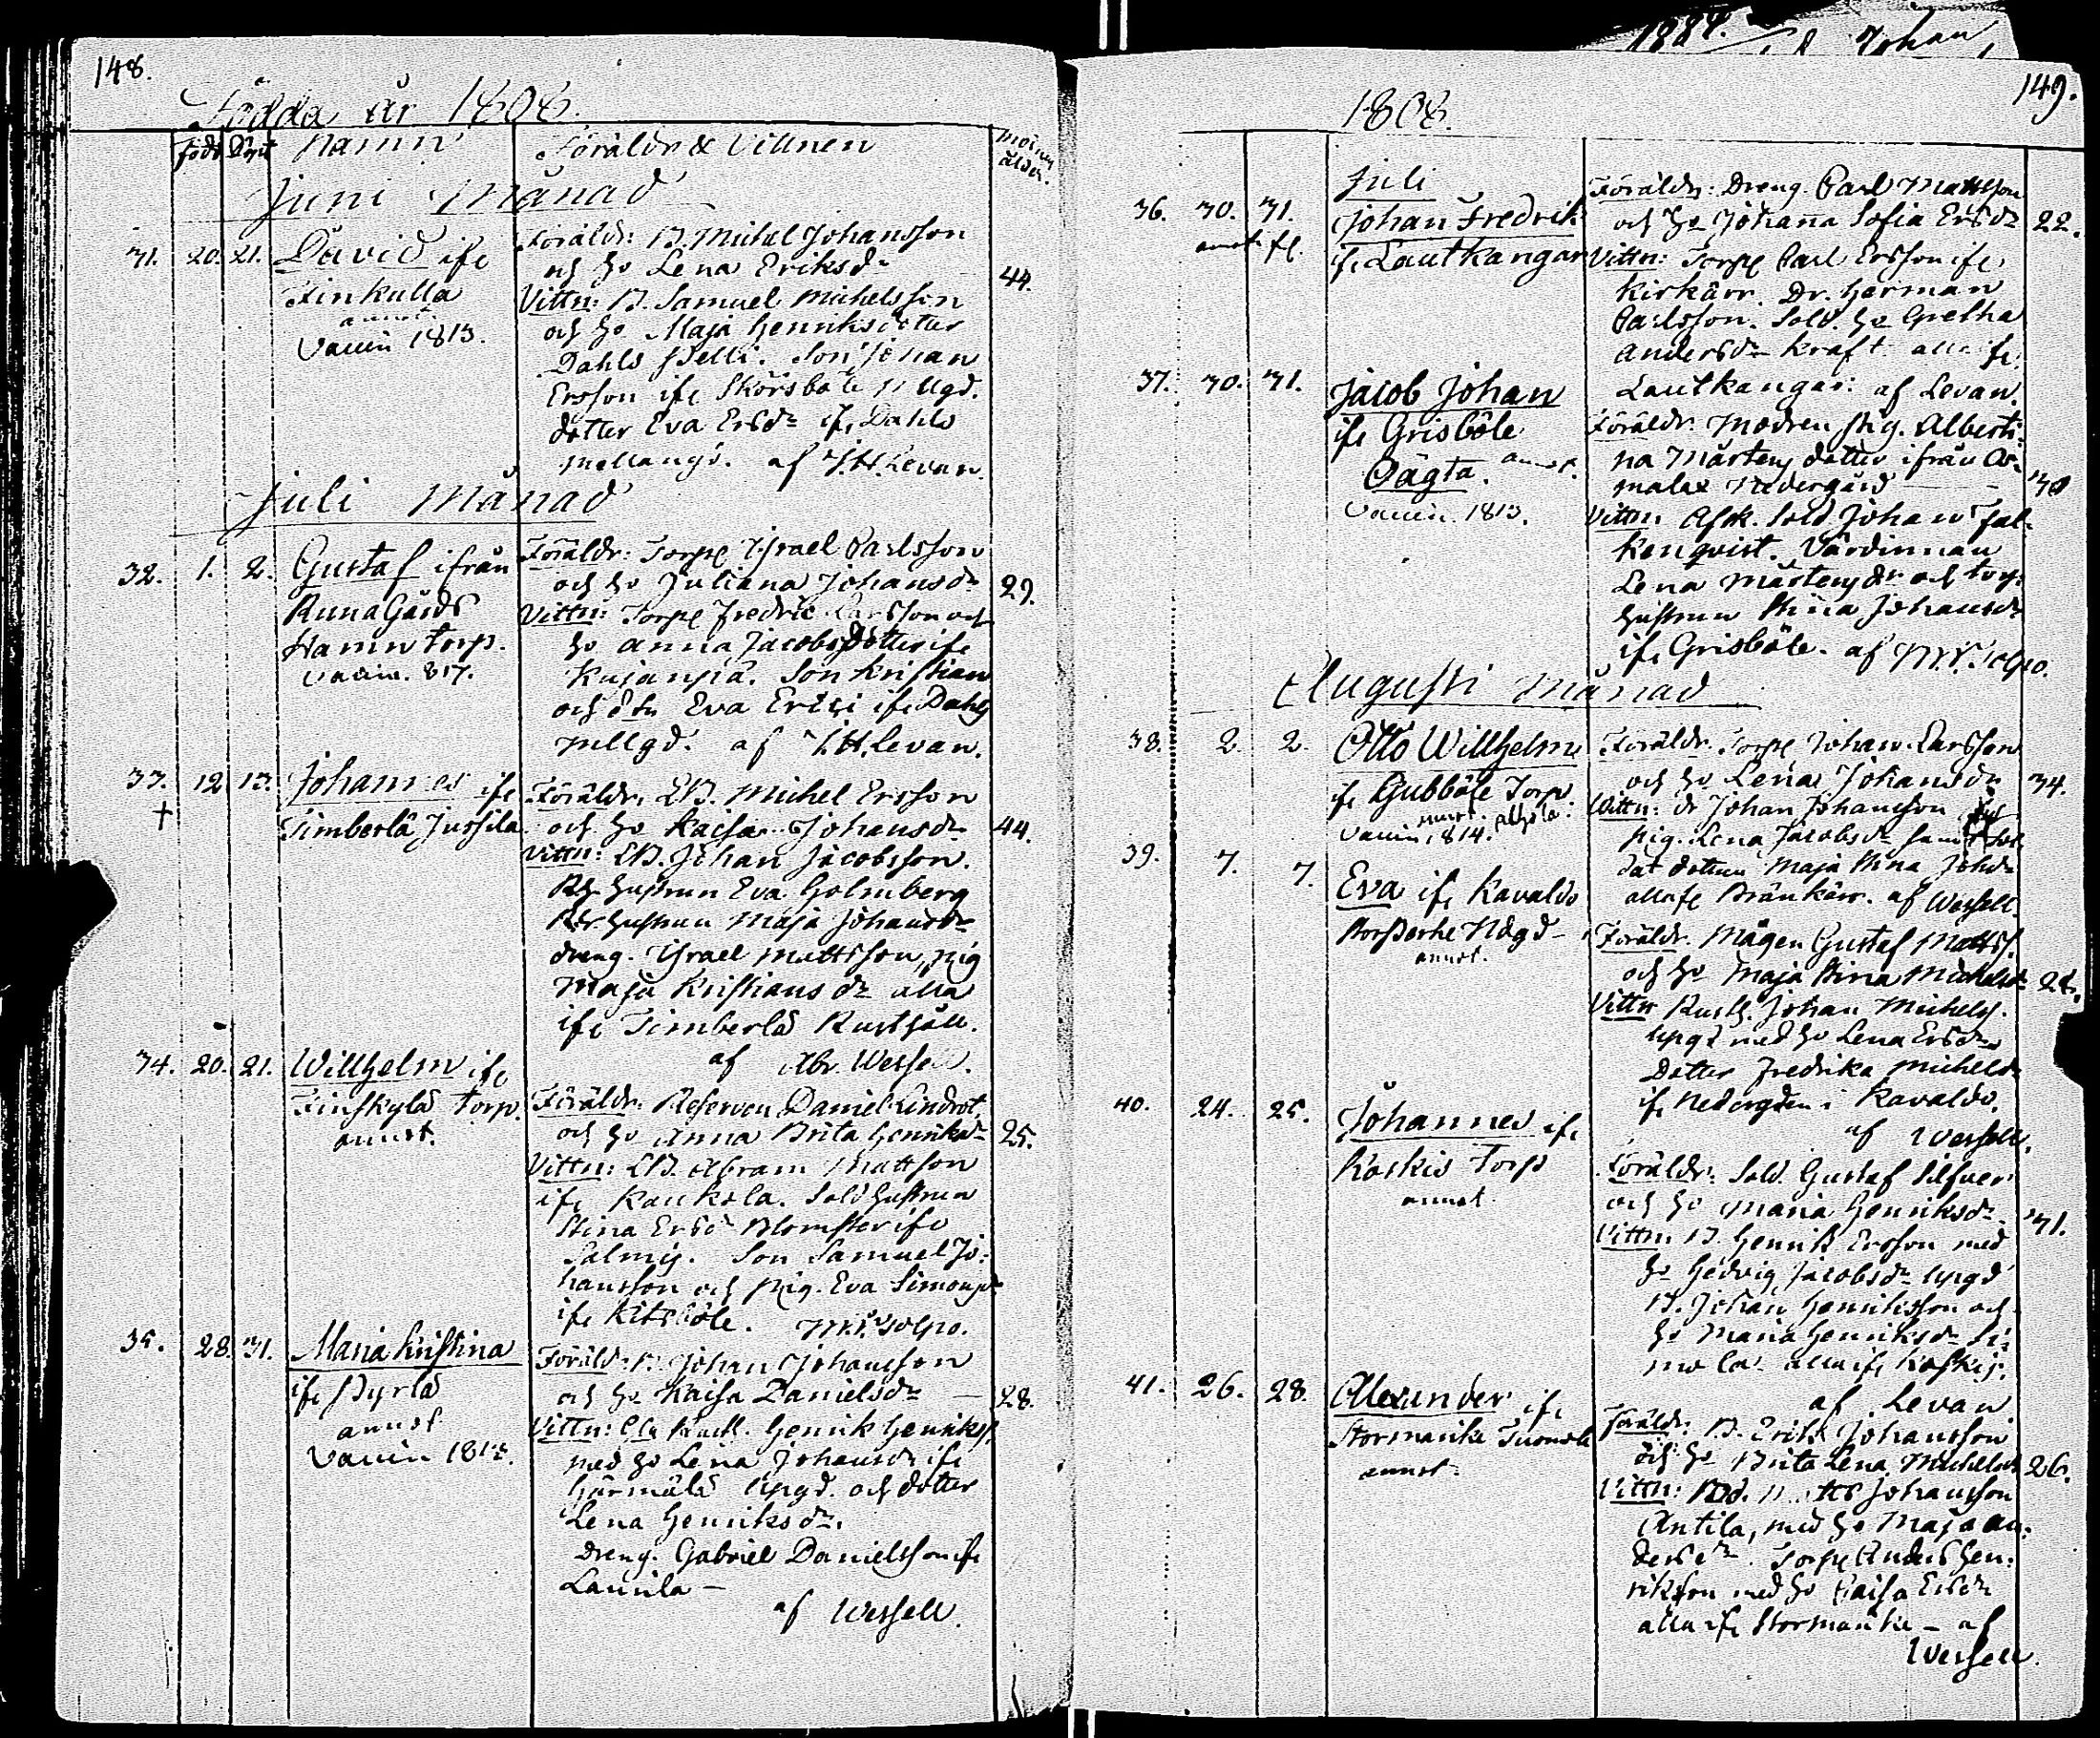 148.
Födda år 1808.
född Döpt Namn Föräldr & Vittnen
Juni Månad
31. 20. 21. David ifr
Finkulla
annot.
Vaccin 1813.
Föräldr: B. Michel Johansson
och Ho Lena Eriksdr 44.
Vittn: B. Samuel Michelsson
och Ho Maja Henriksdotter
Dahls Son Johan
Ersson ifr Skörsböle
dotter Eva Ersdr ifr Dahls
mellangd. af J.H. Levan.
Juli Månad
32. 1. 2. Gustaf ifrån
Runagårds
Hamn torp.
Vaccin. 817.
Föräldr: Torpr Israel Carlsson
och Ho Juliana Johansdr 29.
Vittn: Torpr Fredric Carlsson och
Ho Anna Jacobsdotter ifr
Kujanpä. Son Kristian
och dtr Eva Ersi ifr Dahls
mellgd. af J.H. Levan.
33. 12. 13. Johannes ifr
† Timberlä Jussila
Föräldr. Michel Ersson
och Ho Kaisa Johansdr 44.
Vittn: Johan Jacobsson.
Hustrun Eva Holmberg
Hustrun Maja Johansdr
dreng. Israel Mattsson, pig
Maja Kristiansdr alla
ifr Timberlä Rusthåll.
af Abr. Wessell.
34. 20. 21. Willhelm ifr
Finskylä torp.
annot.
Föräldr: Reserven Daniel Lindrot
och Ho Anna Brita Henriksdr 25.
Vittn: Abram Mattson
ifr Kaukola. Sold Hustrun
Stina Ersdr Blomster ifr
Salmis. Son Samuel Jo-
hansson och Pig. Eva Simonsdr
ifr Kitsböle. Tolpo.
35. 28. 31. Maria Kristina
ifr Pyrlä
annot
Vaccin
Föräld: B. Johan Johansson
och Ho Kaisa Danielsdr 28.
Vittn: Henrik Henrikss.
med Ho Lena Johansdr ifr
Härmälä Upgd. och dotter
Lena Henriksdr.
dreng. Gabriel Danielsson ifr
Laurila —
af Wessell.
149.
1808.
Juli
36. 30. 31. Johan Fredrik
ifr Lautkangar
Föräldr: Dreng. Carl Mattsson
och Ho Johana Sofia Ersdr 22.
Vittn: Torpr Carl Ersson ifr
Kirkärr. Dr. Herman
Carlsson. Sold. Ho Gretha
Andersdr Kraft alla ifr
Lautkangar: af Levan.
37. 30. 31. Jacob Johan
ifr Grisböle
Oägta. annot.
Vaccin. 1813.
Föräldr. Modren Pig. Alberti-
na Mårtens dotter ifrån
Nedergård 30
Vittn. Afsk. Sold Johan Fal-
kenqvist. Värdinnan
Lena Mårtensdr och torp.
Hustrun Stina Johansdr
ifr Grisböle. af Tolpo.
Augusti Månad
38. 2. 2. Otto Willhelm
ifr Gubböle Torp.
annot.
Vaccin, 1814.
Föräldr. Torpr Johan Carlsson
och Ho Lena Johansdr 34.
Vittn: dr Johan Johansson
Pig. Lena Jacobsdr samt sol-
dat dottren Maja Stina Johdr
alla fr Bränkärr. af Wessell.
39. 7. 7. Eva ifr Kavaldo
Storperhe Ndgd
annot.
Föräldr. Mågen Gustaf Matts.
och Ho Maja Stina Michelsdr
Vittn Rusth. Johan Michels.
Upgd med Ho Lena Ersdr
Dotter Fredrika Michelsdr
ifr Nedergden i Kavaldo.
af Wessell.
40. 24. 25. Johannes ifr
Koskis torp
annot.
Föräldr: Sold. Gustaf Silfver
och Ho Maria Henriksdr 31.
Vittn: B. Henrik Ersson med
Ho Hedvig Jacobsdr Upgd
B. Johan Henriksson och
Ho Maria Henriksdr Si-
mola alla ifr Koskis.
af Levan
41. 26. 28. Alexander ifr
Stormanke Tuomola
annot.
Föräldr: B. Erik Johansson
och Ho Brita Lena Michelsdr 26.
Vittn: Johansson
Antila, med Ho Maja An-
dersdr. Torpr Anders Hen-
riksson med Ho Caisa Ersdr
alla ifr Stormanke — af
Wessell.
1884.
Johan